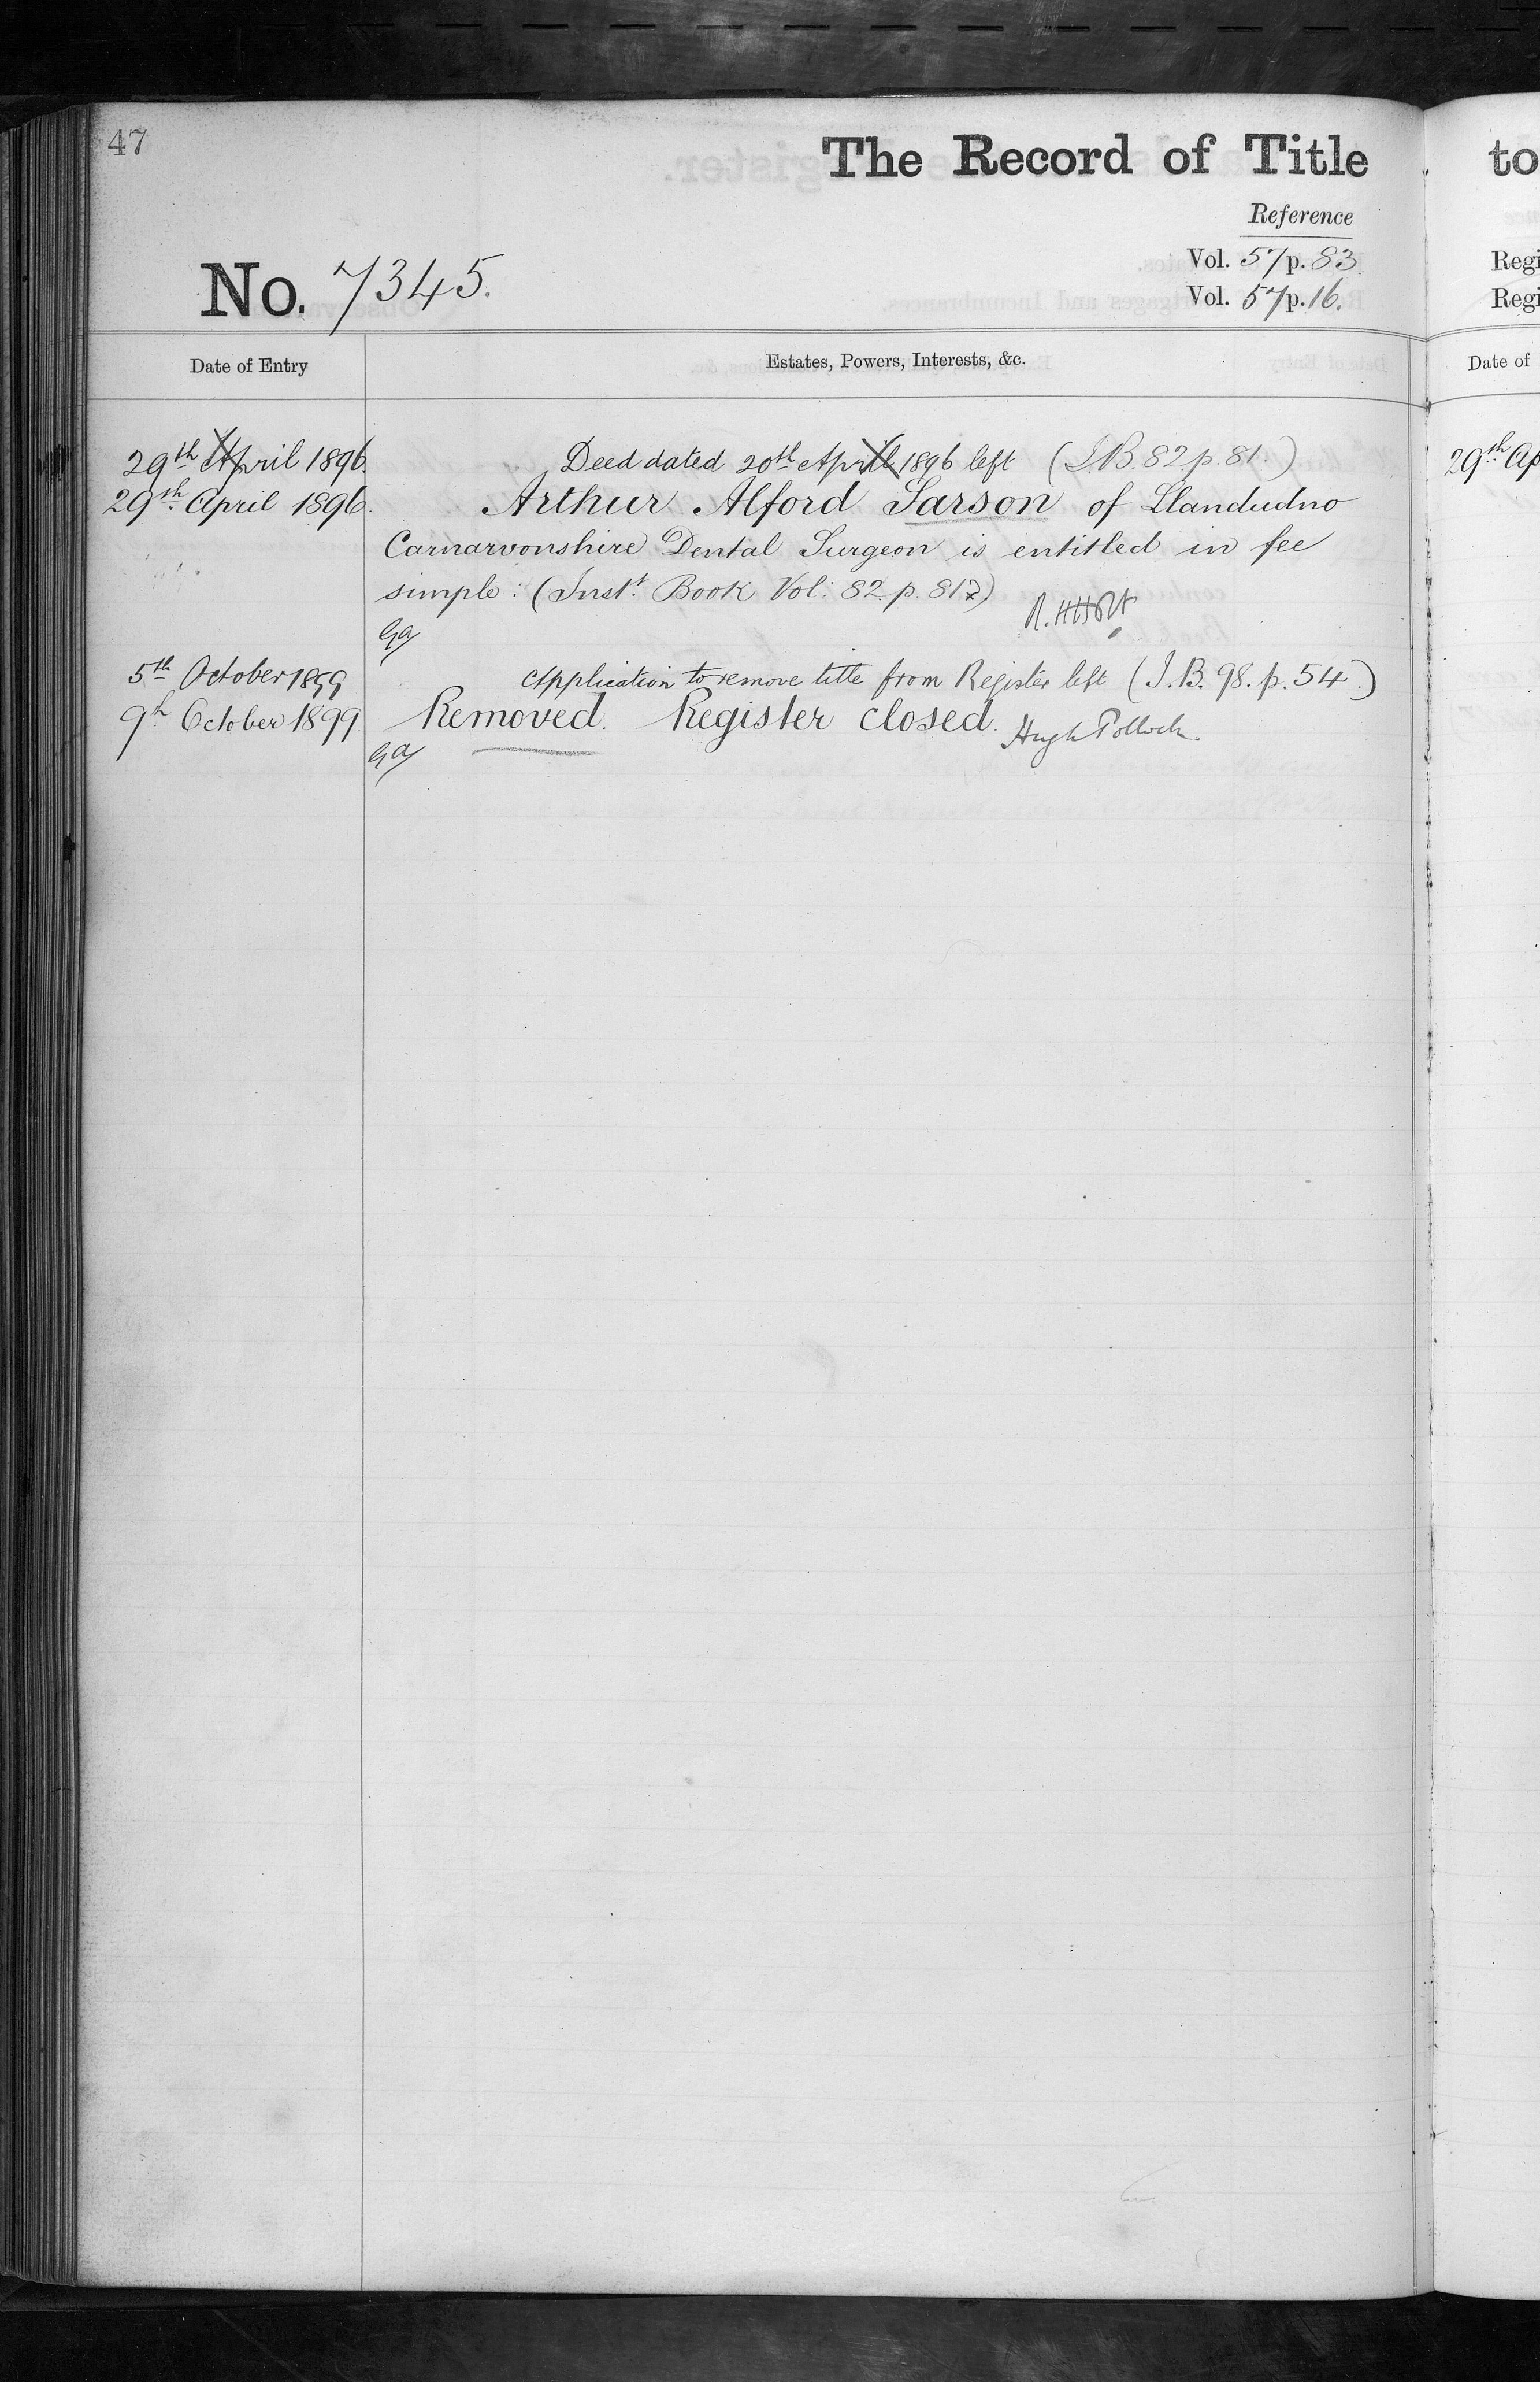 47
The Record of Title
to
Reference
No. 7345.
Vol. 57 p. 83.
Vol. 57 p. 16.
Regi
Regi
Date of Entry
Estates, Powers, Interests, &c.
Date of
29th April 1896. Deed dated 20th April 1896 left (I.B. 82 p. 81.)
29th Ap
29th April 1896. Arthur Alford Sarson of Llandudno
Carnarvonshire Dental Surgeon is entitled in fee
simple: (Inst. Book Vol: 82. p. 81)
5th October 1899 Application to remove title from Register left (I.B. 98. p. 54.)
9th October 1899 Removed. Register closed. Hugh Pollock.